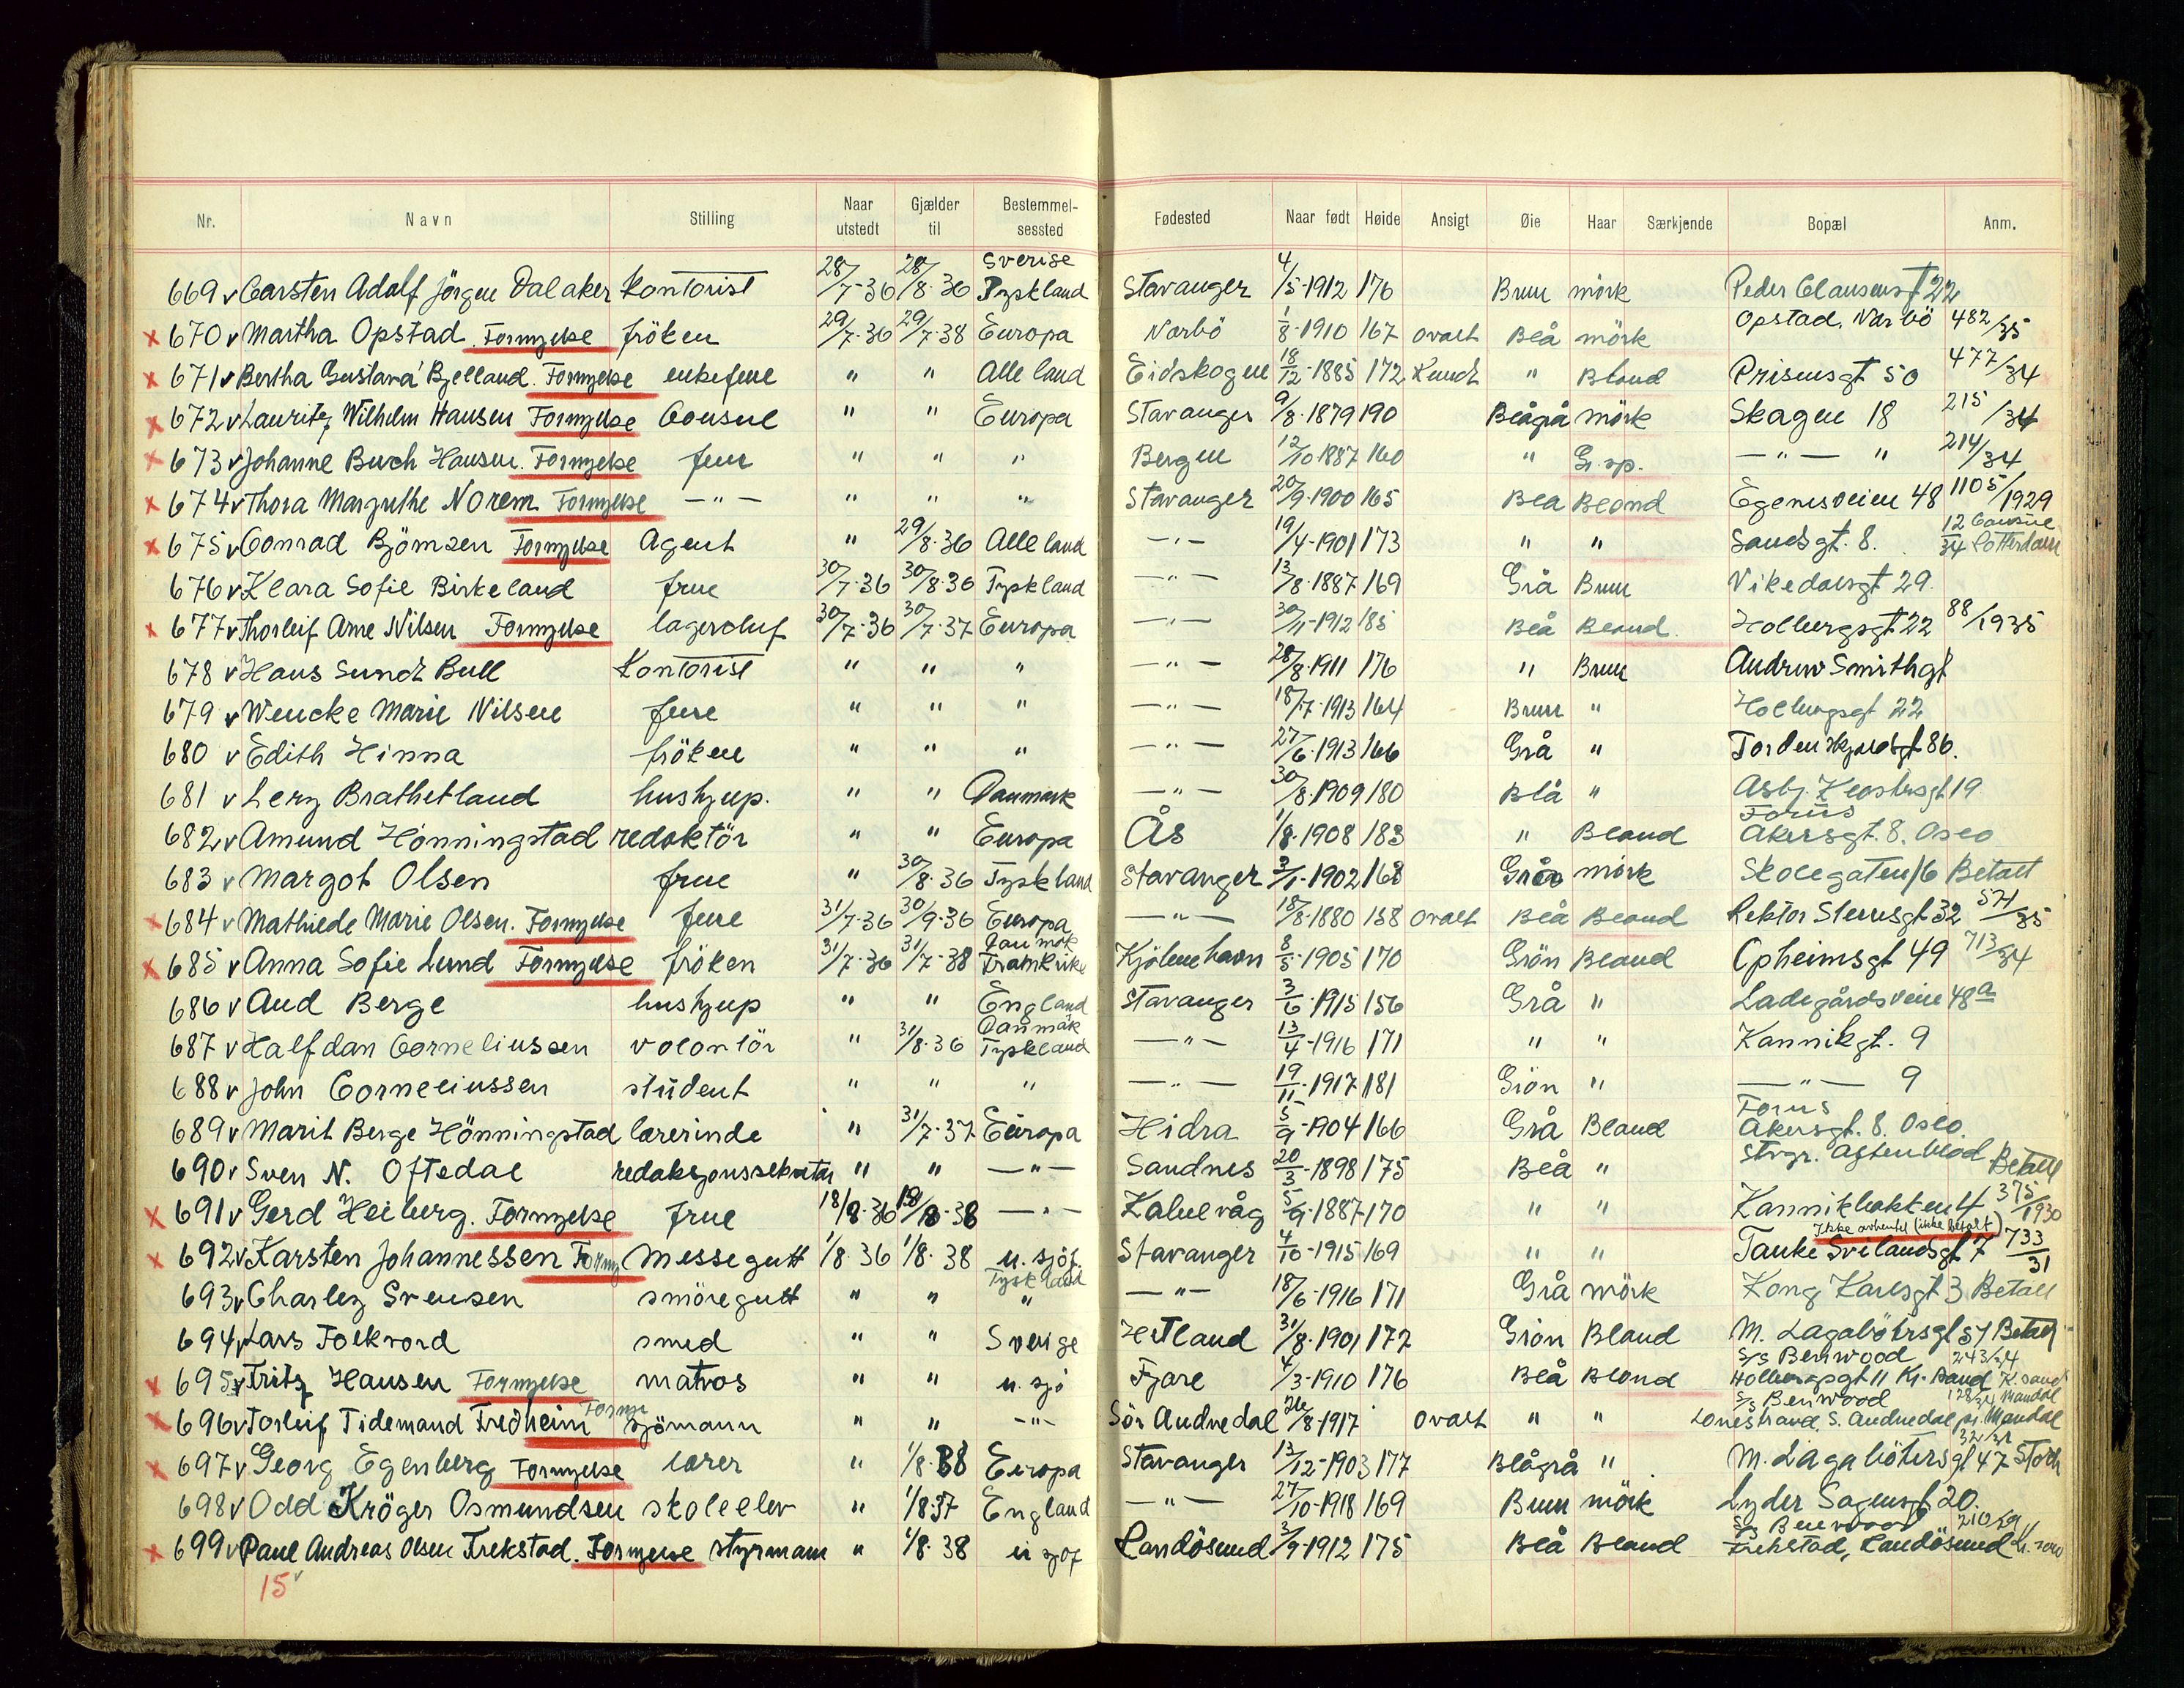 Nr. Navn Stilling Naar utstedt Gjælder til Bestemmelsessted Fødested Naar født Høide Ansigt Øie Haar Særkjende Bopæl Anm.
669 v Carsten Adolf Jörgen Dalaker Kontorist 28/7-36 28/8-36 Sverise Tyskland Stavanger 4/5-1912 176 Brun mörk Peder Clausensgt 22
x 670 v Martha Opstad. Fornyelse fröken 29/7-36 29/7-38 Europa Narbö 1/8-1910 167 ovalt Blå mörk Opstad, Narbö 482/35
x 671 v Bertha Gustava Bjelland. Fornyelse enkefrue " " Alle land Eidskogen 18/12-1885 172 Rundt " Blond Prinsensgt 50 477/34
x 672 v Lauritz Wilhelm Hansen Fornyelse Consul " " Europa Stavanger 9/8-1879 190 Blågrå mörk Skagen 18 215/34
x 673 v Johanne Buch Hansen. Fornyelse frue " " " Bergen 12/10-1887 160 " Gr.sp. —"— " 214/34
x 674 v Thora Margrethe Norem Fornyelse —"— " " " Stavanger 20/9-1900 165 Blå Blond Egenesveien 48 1105/1929
x 675 v Conrad Björnsen Fornyelse Agent " 29/8-36 Alle land —"— 19/4-1901 173 " " Sandsgt. 8. 12/34 Rotterdam
676 v Klara Sofie Birkeland frue 30/7-36 30/8-36 Tyskland —"— 13/8-1887 169 Grå Brun Vikedalsgt 29.
x 677 v Thorleif Arne Nilsen Fornyelse lagerchef 30/7-36 30/7-37 Europa —"— 30/11-1912 185 Blå Blond. Holbergsgt 22 88/1935
678 v Hans Sundt Bull Kontorist " " " —"— 28/8-1911 176 " Brun Andrew Smithgt
679 v Wencke Marie Nilsen frue " " " —"— 18/7-1913 164 Brun " Holbergsgt 22
680 v Edith Hinna fröken " " " —"— 27/6-1913 166 Grå " Tordenskjoldsgt 86.
681 v Lery Brathetland hushjelp. " " Danmark —"— 30/8-1909 180 Blå " Asbj. Klostersgt 19
682 v Amund Hönningstad redaktör " " Europa Ås 1/8-1908 183 " Blond Forus Akersgt. 8. Oslo
683 v Margot Olsen frue " 30/8-36 Tyskland Stavanger 3/1-1902 168 Grå mörk Skolegaten 16 Betalt
x 684 v Mathilde Marie Olsen. Fornyelse frue 31/7-36 30/9-36 Europa —"— 18/8-1880 158 Ovalt Blå Blond Rektor Steensgt 32 571/35
x 685 v Anna Sofie Lund Fornyelse fröken 31/7-36 31/7-38 Danmark Frankrike Kjöbenhavn 8/5-1905 170 Grön Blond Opheimsgt 49 713/34
686 v Aud Berge hushjelp " " England Stavanger 3/6-1915 156 Grå " Ladegårdsveien 48a
687 v Halfdan Corneliussen volontör " 31/8-36 Danmark Tyskland —"— 13/4-1916 171 " " Kannikgt. 9
688 v John Corneliussen student " " " —"— 19/11-1917 181 Grön " —"— 9
689 v Marit Berge Hönningstad lærerinde " 31/7-37 Europa Hidra 5/9-1904 166 Grå Blond Forus Akersgt. 8. Oslo.
690 v Sven N. Oftedal redaksjonssekretær " " —"— Sandnes 20/3-1898 175 Blå " Stvgr. Aftenblad Betalt
x 691 v Gerd Heiberg. Fornyelse frue 18/8-36 18/8-38 —"— Kalvevåg 5/9-1887 170 " " Kannikbakken 4 375/1930
x 692 v Karsten Johannessen Forny Messegutt 1/8-36 1/8-38 u. sjöf. Stavanger 4/10-1915 169 " " Ikke avhentet (ikke betalt) Tanke Svilandsgt 7 733/31
693 v Charley Svensen smöregutt " " Tyskland " —"— 18/6-1916 171 Grå mörk Kong Karlsgt 3 Betalt
694 v Lars Folkvord smed " " Sverige Hetland 31/8-1901 177 Grön Blond M. Lagabötersgt 57 Betalt
x 695 v Fritz Hansen Fornyelse matros " " u. sjö Fjære 4/3-1910 176 Blå Blond S/S Benwood Holbergsgt 11 Kr. Sand 243/34 K.sand
x 696 v Torleif Tidemand Fredheim Forny sjömann " " —"— Sör Audnedal /8-1917 ovalt " " S/S Benwood Lonestrand, S. Audnedal pr. Mandal Mandal
x 697 v Georg Egenberg Fornyelse lærer " 1/8-38 Europa Stavanger 13/12-1903 177 Blågrå " M. Lagabötersgt 47
698 v Odd Kröger Osmundsen skoleelev " 1/8-37 England —"— 27/10-1918 169 Brun mörk Lyder Sagensgt 20.
x 699 v Paul Andreas Olsen Trekstad. Fornyelse styrmann " 1/8-38 u sjöf Randösund 3/9-1912 175 Blå Blond S/S Benwood Trekstad, Randösund 210/29
15 v